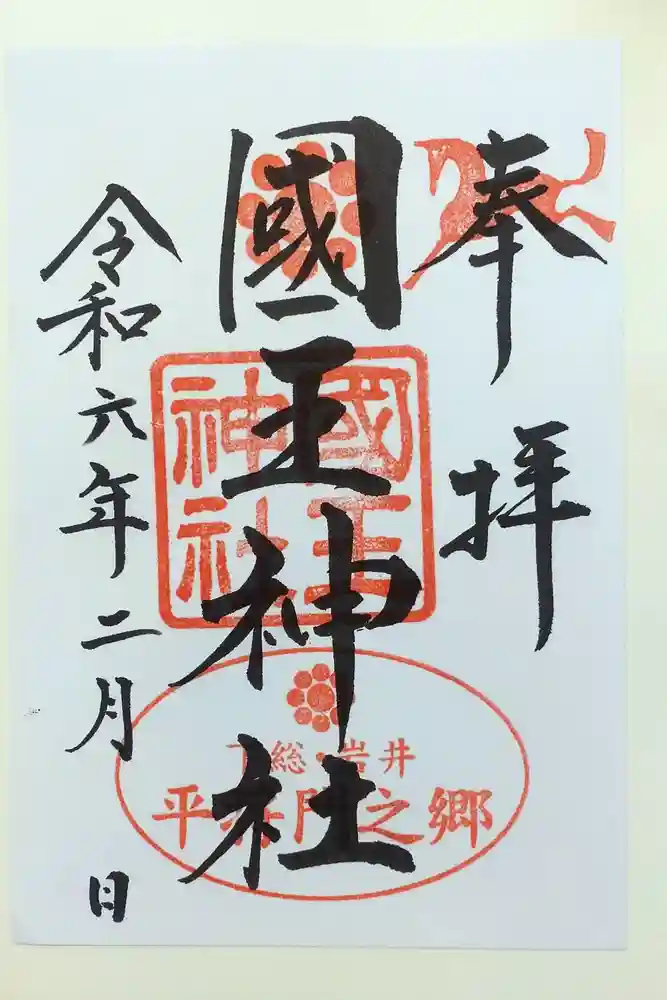 奉拝
國王神社
令和六年二月 日
國王
神社
下総・岩井
平将門之郷